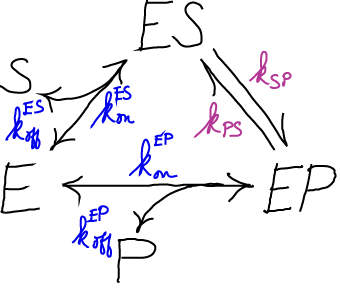 ES
S
k_off^ES
k_on^ES
k_SP
k_PS
E
k_on^EP
EP
k_off^EP
P